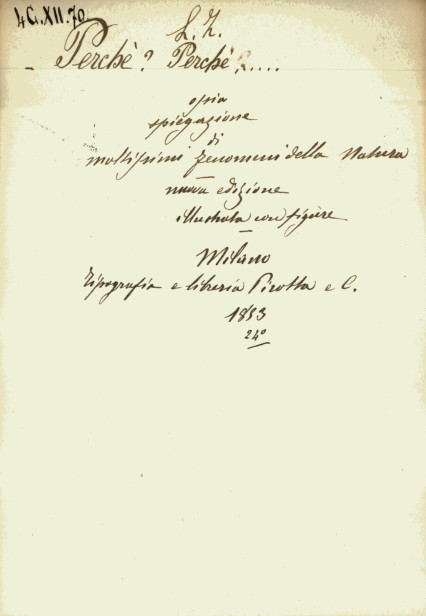 4C.XII.70
L. Z.
Perchè? Perchè?....
ossia
spiegazione
di
moltissimi fenomeni della Natura
nuova edizione
illustrata con figure
Milano
Tipografia e libreria Pirotta e C.
1853
24°